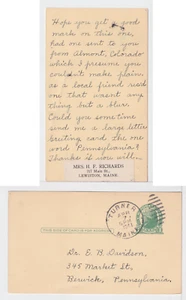 Hope you get a good
mark on this one,
had one sent to you
from Almont, Colorado
which I presume you
couldn't make plain
as a local friend read
one that wasn't any
thing but a blur.
Could you sometime
send me a large letter
Greeting card the one
word Pennsylvania?
Thanks if you will.
MRS. H. F. RICHARDS
LEWISTON, MAINE
TURNER
MAINE
Dr. E. B. Davidson,
345 Market St.,
Berwick,
Pennsylvania.